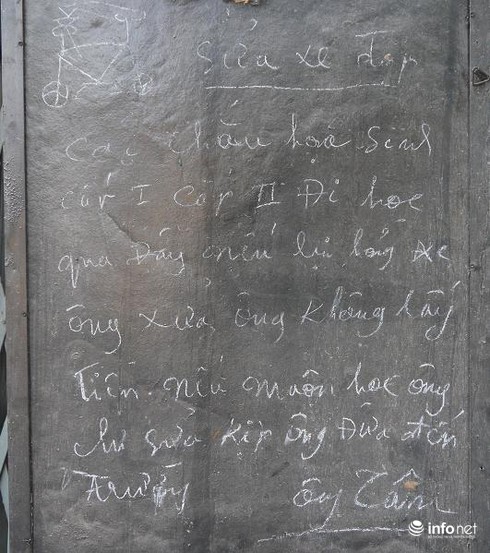 Sửa xe đạp
Các cháu học sinh
cấp I cấp II Đi học
qua Đây nếu bị hỏng xe
ông xửa ông không lấy
Tiền. nếu muộn học ông
sửa kịp ông Đưa đến
Trường ông Tâm
infonet